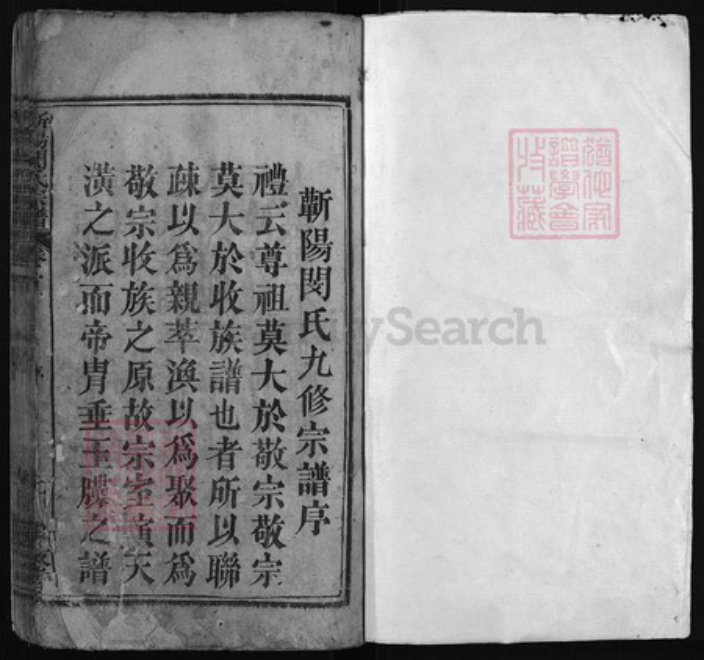 蘄陽閔氏九修宗譜序
禮云尊祖莫大於敬宗敬宗
莫大於收族譜也者所以聯
疎以爲親萃渙以爲聚而爲
敬宗收族之原故宗室演天
潢之派而帝胄垂玉牒之譜
Search